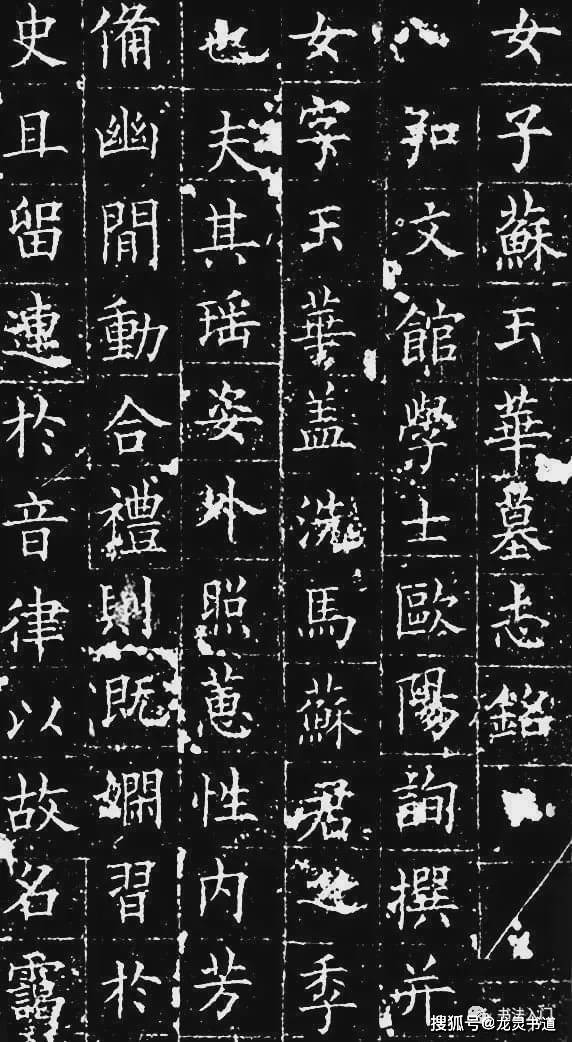 女子蘇玉華墓志銘
文館學士歐陽詢撰并
女字玉華盖洗馬蘇君之季
也夫其瑶姿外照蕙性内芳
備幽間動合禮則既嫻習於
史且留連於音律以故名靄
书法入门
搜狐号@龙灵书道